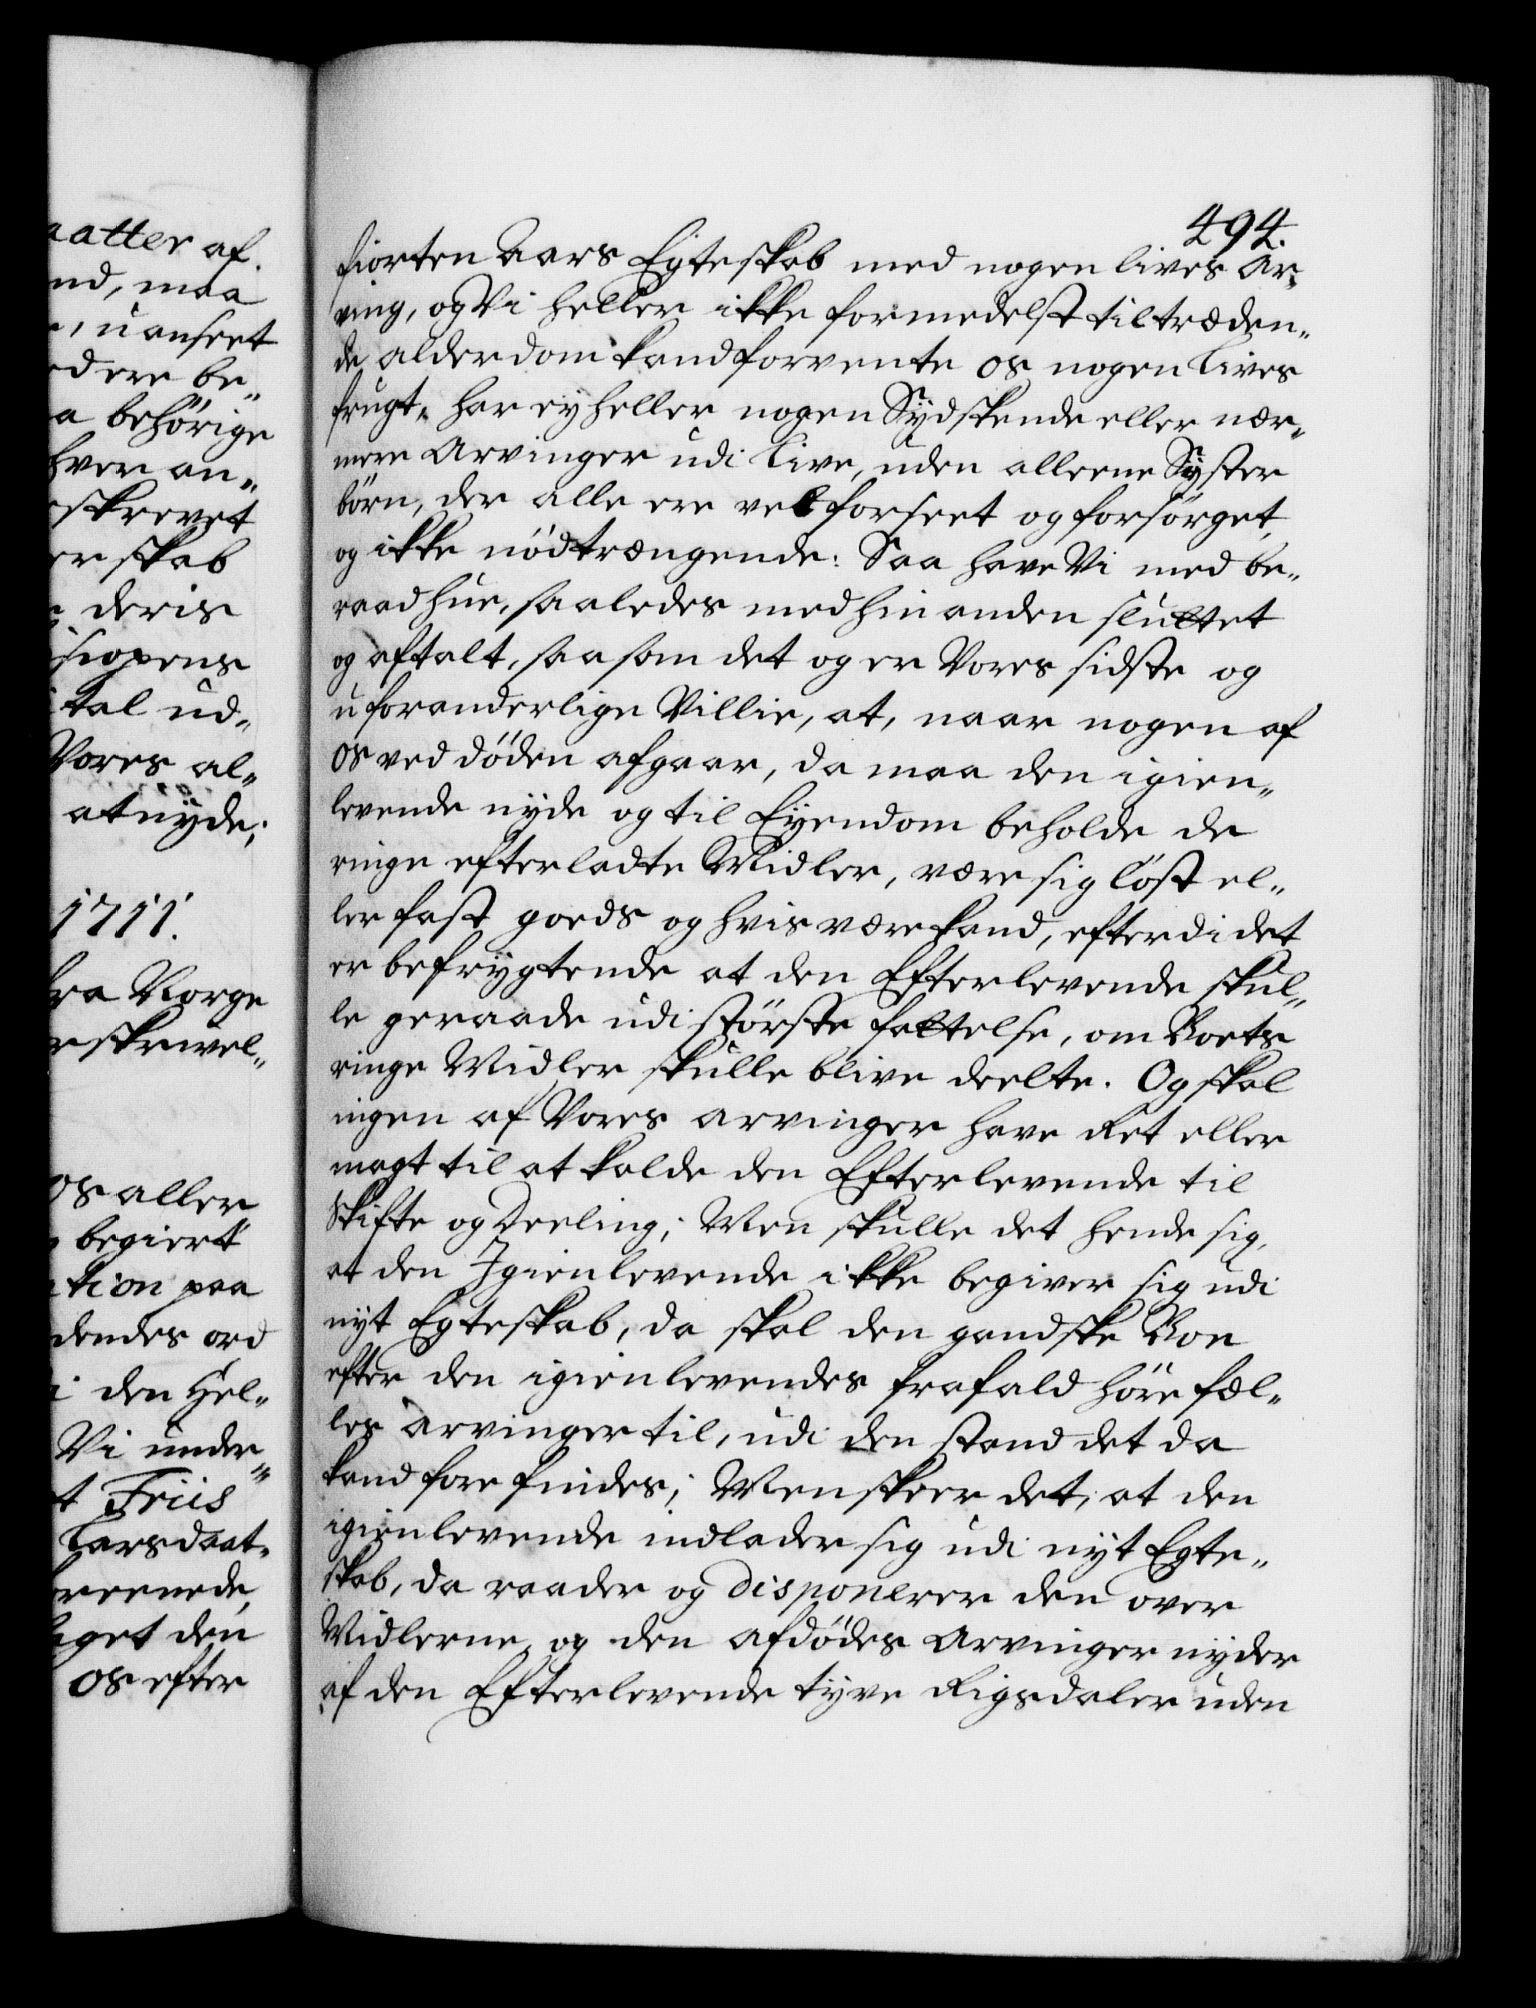 aatter af
nd, maa
, uanseet
dere be„
a behörige
hver an„
skrevet
er skab
deris
siopens
tal ud„
Vores al„
at nyde;
1711.
fra Norge
rskrivel„
os aller
begiert
tion paa
dendes ord
i den Hel„
Vi under„
t Friis
Larsdaat„
reenede,
aget den
os efter
494.
fiorten Aars Egteskab med nogen livs Ar„
ving, og Vi heller ikke formedelst tiltræden„
de alderdom kand forvente os nogen Lives
frugt, har ey heller nogen Sydskende eller nær„
mere Arvinger udi Live, uden alleene Syster
börn, der alle ere vel forseet og forsörget,
og ikke nödtrængende: Saa have Vi med be„
raad hue, saaledes med hinanden sluttet
og aftalt, saasom det og er Vores sidste og
uforanderlige Villie, at, naar nogen af
os ved döden afgaar, da maa den igien„
levende nyde og til Eyendom beholde de
ringe efterladte Midler, være sig löst el„
ler fast goeds og hvis være kand, efterdi det
er befrygtende at den Efterlevende skul„
le geraade udi störste fattelse, om Boets
ringe Midler skulle blive deelte. Og skal
ingen af Vores arvinger have Ret eller
magt til at kalde den Efterlevende til
Skifte og Deeling; Men skulle det hende sig,
at den Igienlevende ikke begiver sig udi
nyt Egteskab, da skal den gandske Boe
efter den igienlevendes frafald höre fæl„
les arvinger til, udi den stand det da
kand forefindes; Men skeer det, at den
igienlevende indlader sig udi nyt Egte„
skab, da raader og disponerer den over
Midlerne, og den afdödes Arvinger nyder
af den Efterlevende tyve Rigsdaler uden